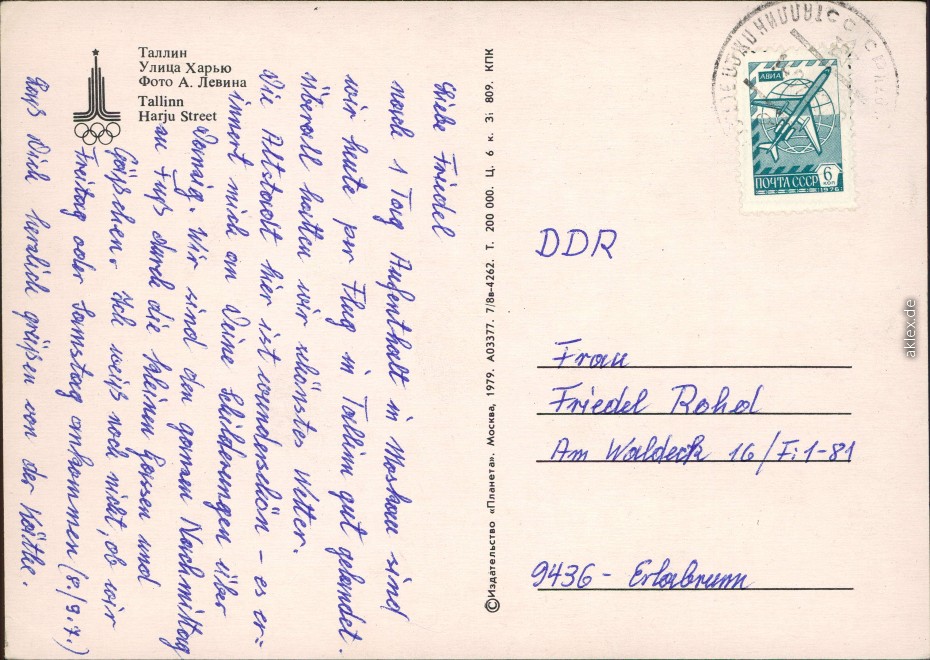 Таллин
Улица Харью
Фото А. Левина
Tallinn
Harju Street
Liebe Friedel
nach 1 Tag Aufenthalt in Moskau sind
wir heute per Flug in Tallinn gut gelandet.
Überall hatten wir schönstes Wetter.
Die Altstadt hier ist wunderschön - es er-
innert mich an Deine Schilderungen über
Danzig. Wir sind den ganzen Nachmittag
zu Fuß durch die kleinen Gassen und
Gäßchen. Ich weiß noch nicht, ob wir
Freitag oder Samstag ankommen (8./9.7.)
Laß Dich herzlich grüßen von der Käthe.
©Издательство «Планета». Москва, 1979. А03377. 7/8в-4262. Т. 200 000. Ц. 6 к. Зі 809. КПК
АВИА
ПОЧТА СССР
6 КОП
1976
DDR
Frau
Friedel Rohd
Am Waldeck 16/F:1-81
9436 - Erlabrunn
aklex.de